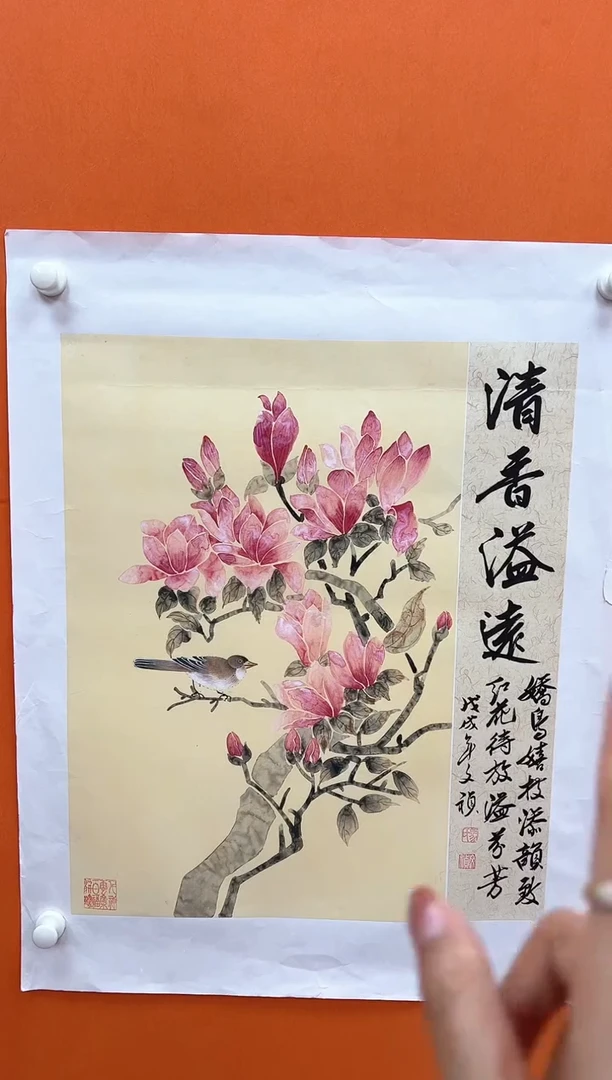 清香溢遠
嬌鳥嬉枝添韻致
紅花待放溢芬芳
戊戌年文禎